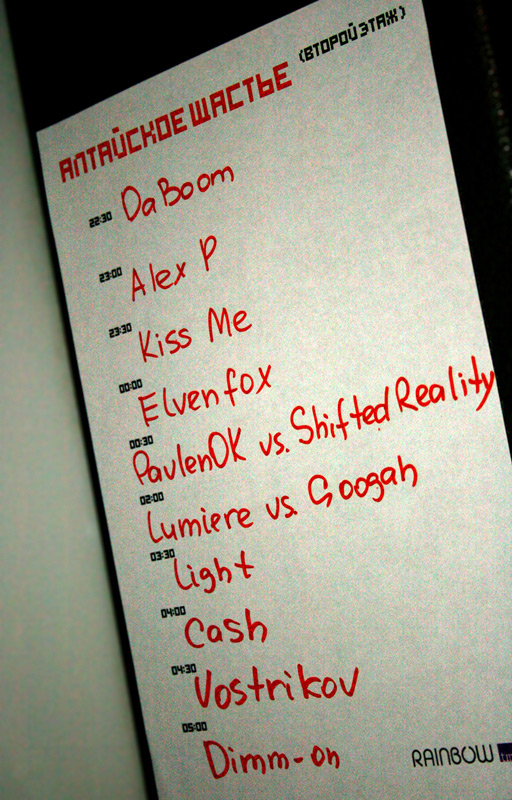 АЛТАЙСКОЕ ЩАСТЬЕ (ВТОРОЙ ЭТАЖ)
22:30 DaBoom
23:00 Alex P
23:30 Kiss Me
00:00 Elvenfox
00:30 PavlenOK vs. Shifted Reality
02:00 Lumiere vs. Googah
03:30 Light
04:00 Cash
04:30 Vostrikov
05:00 Dimm-on
RAINBOW